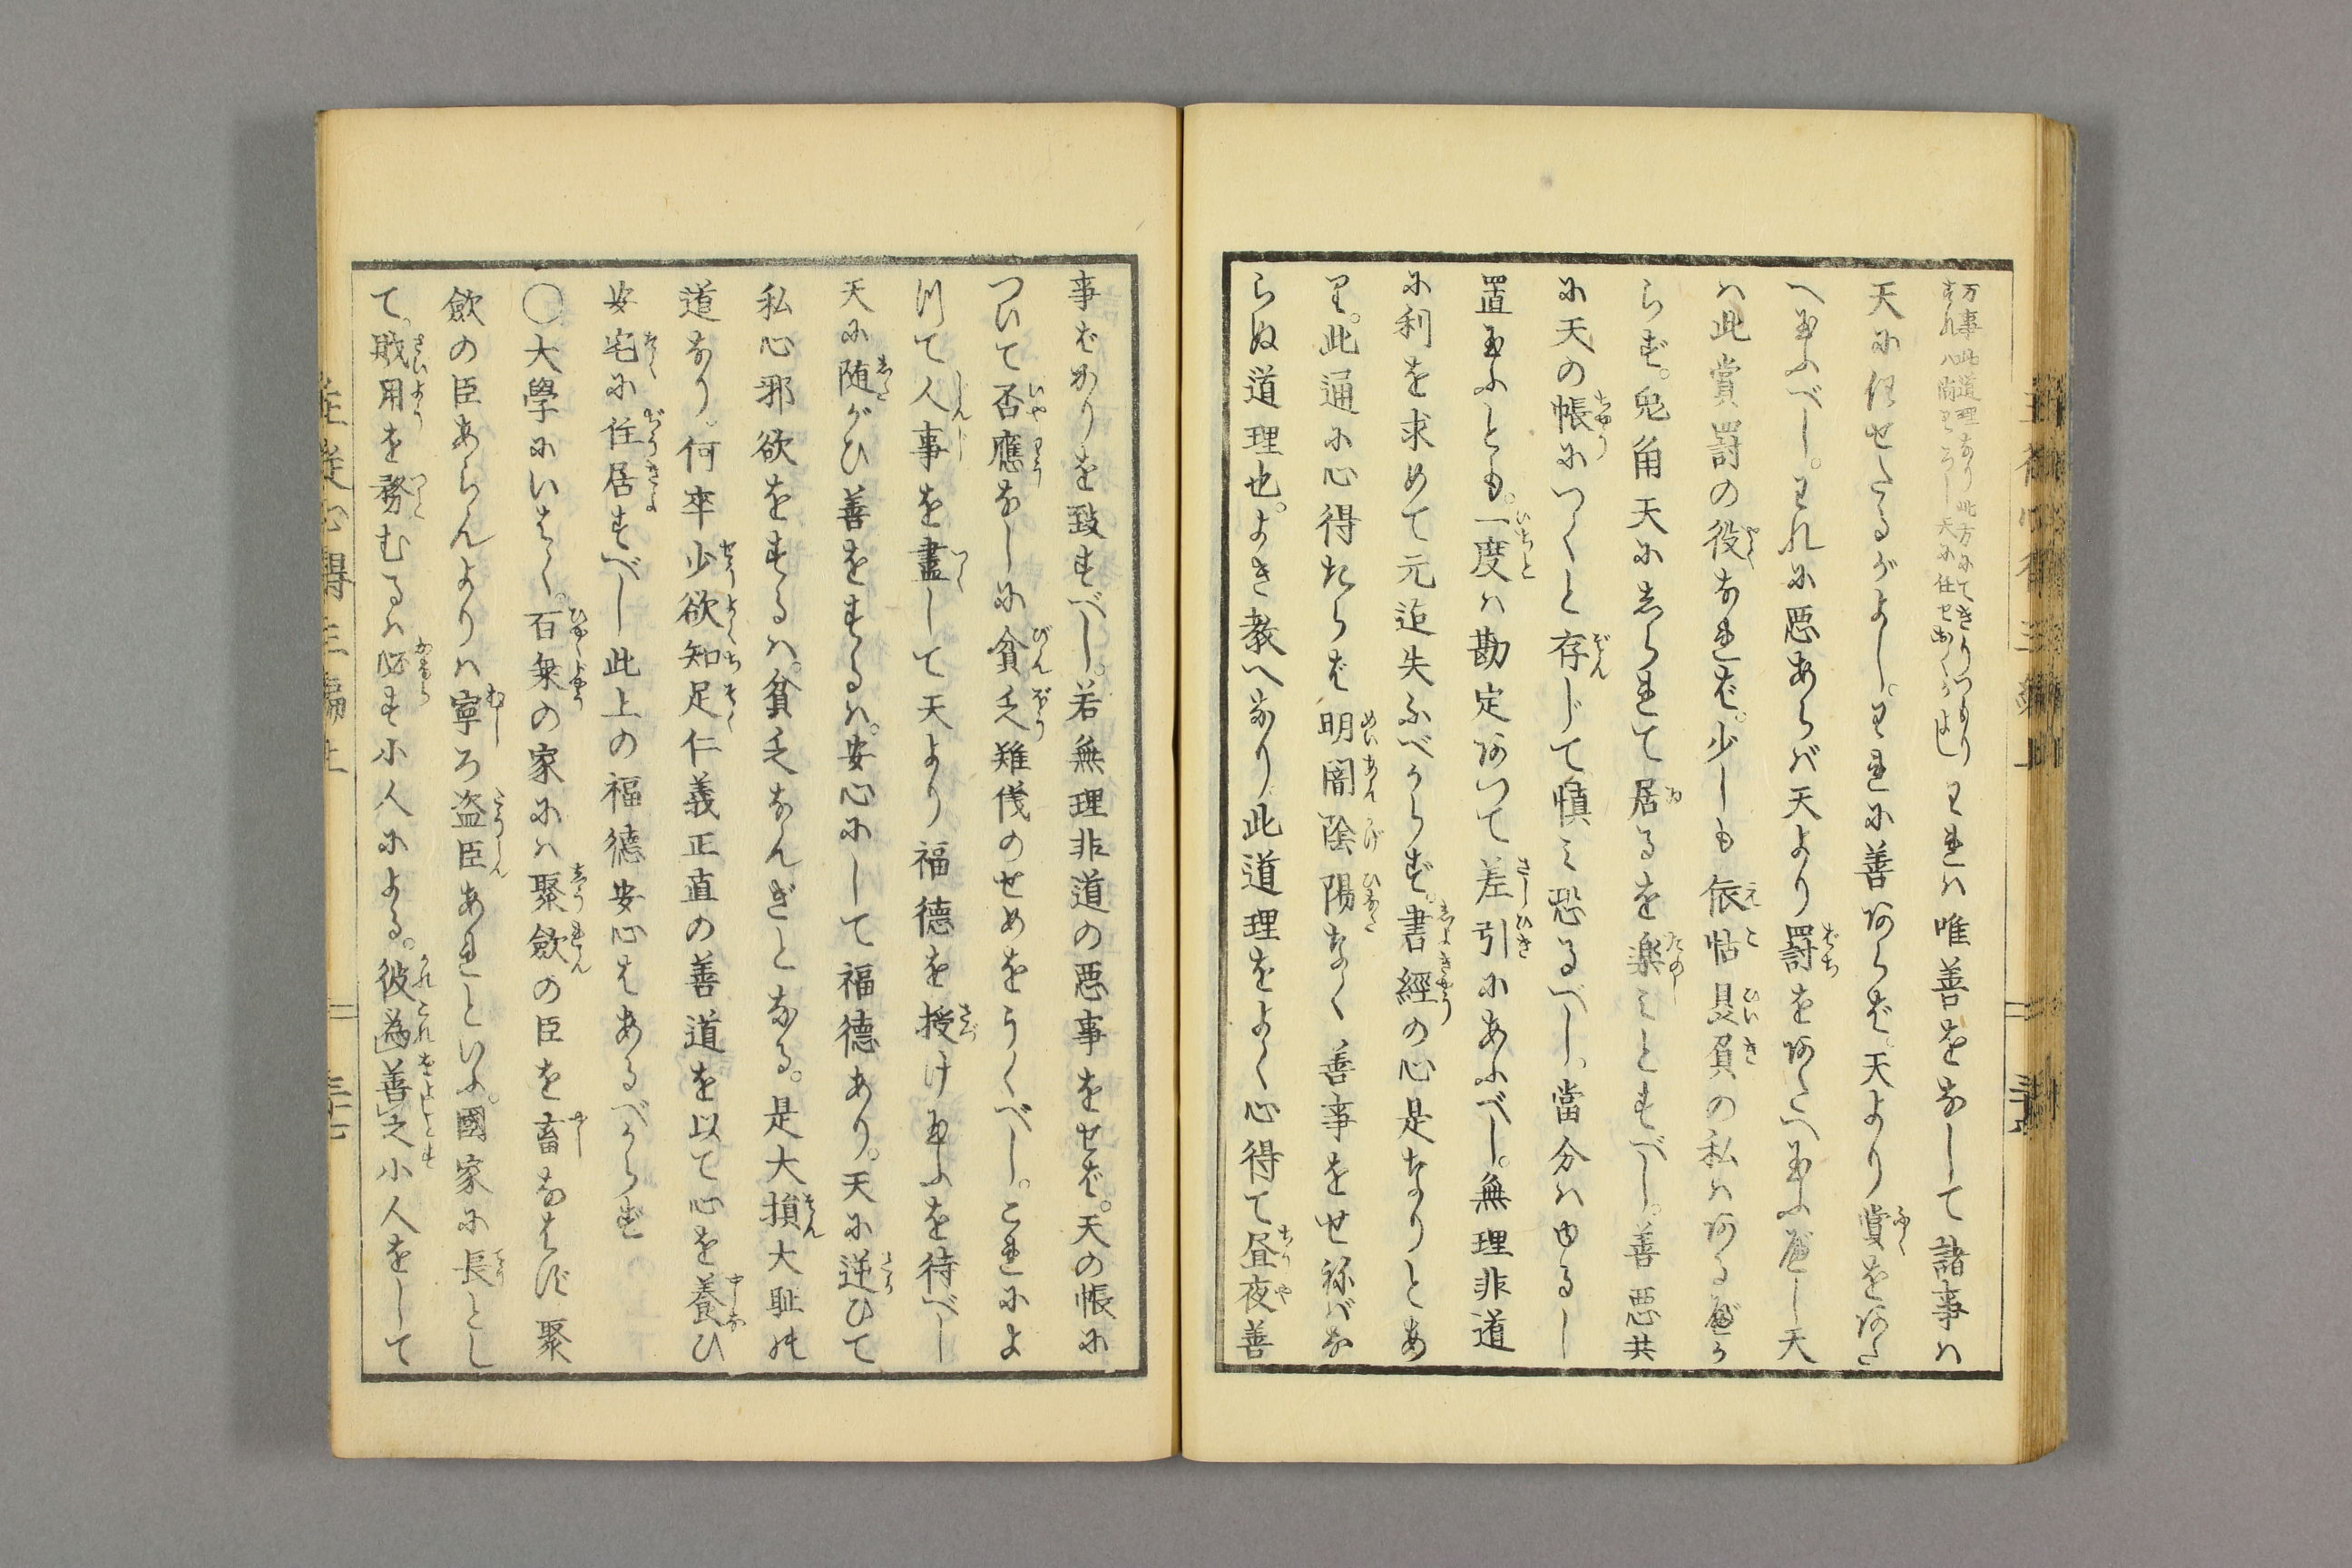 万事此道理なり此方にてきりつもり
すれハ間ちがし天に任せおくがよし われハ唯善をなして諸事ハ
天に任せたるがよし。われに善あらば。天より賞をあた
へ玉ふべし。われに悪あらバ天より罸をあたへ玉ふべし天
ハ此賞罸の役なれば。少しも依怙贔屓の私ハあるべか
らず。兎角天にしられて居るを楽ミとすべし。善悪共
に天の帳につくと存じて慎ミ恐るべし。當分ハゆるし
置玉ふとも。一度ハ勘定あつて差引にあふべし。無理非道
に利を求めて元迄失ふべからず。書經の心是なりとあ
り。此通に心得たらば明闇陰陽なく善事をせねバな
らぬ道理也。よき教へなり此道理をよく心得て昼夜善
事ばかりを致すべし。若無理非道の悪事をせば。天の帳に
ついて否應なしに貧乏難儀のせめをうくべし。これによ
つて人事を盡して天より福德を授け玉ふを待べし
天に随がひ善をするハ。安心にして福德あり。天に逆ひて
私心邪欲をするハ。貧乏なんぎとなる。是大損大耻の
道なり。何卒少欲知足仁義正直の善道を以て心を養ひ
安宅に住居すべし此上の福德安心はあるべからず
○大學にいはく。百乗の家にハ聚斂の臣を畜なはず聚
斂の臣あらんよりハ寧ろ盗臣あれといふ。國家に長とし
て。財用を務むるハ必ず小人による。彼為善之小人をして